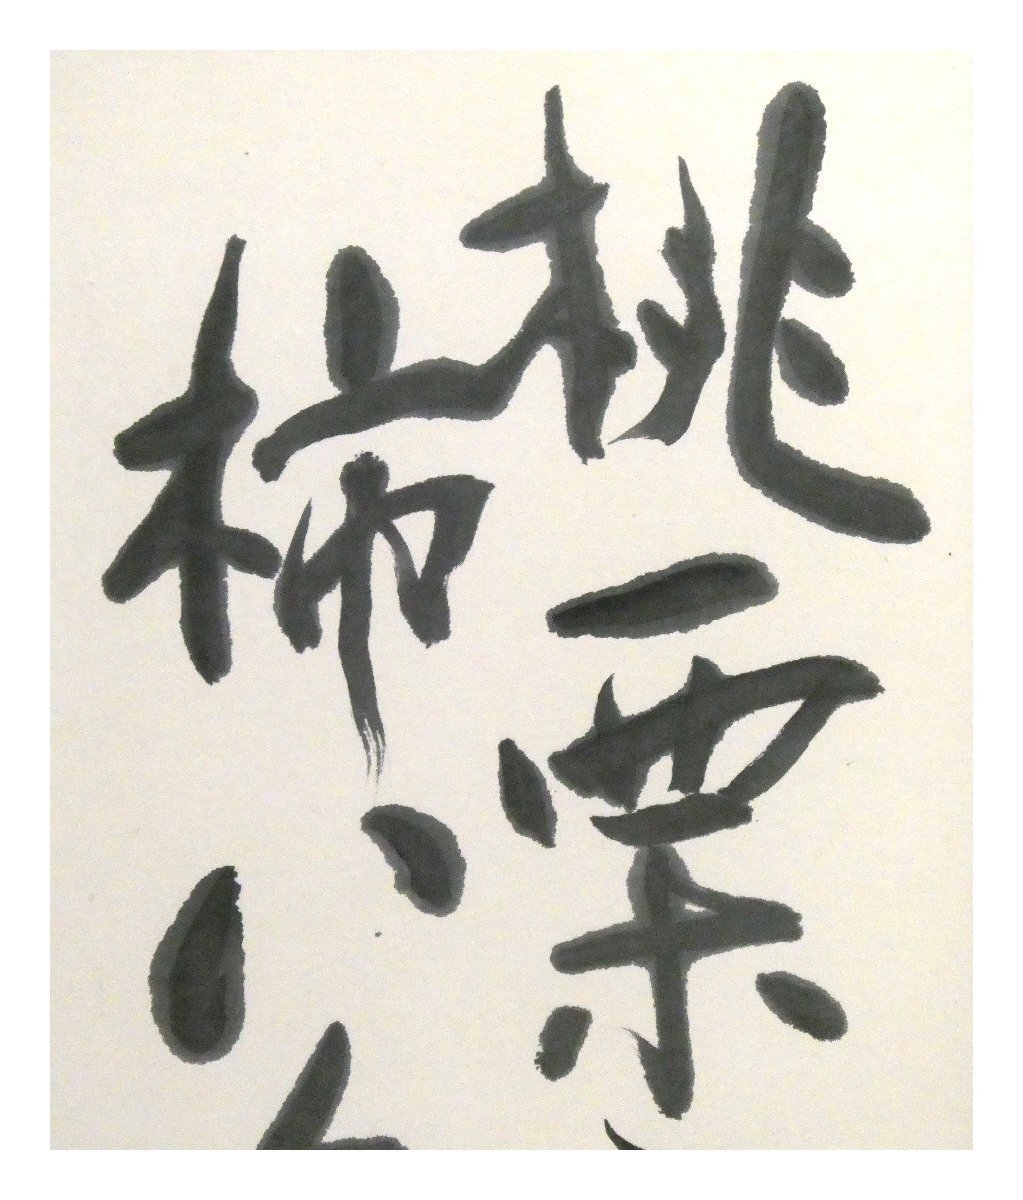 桃栗
柿八